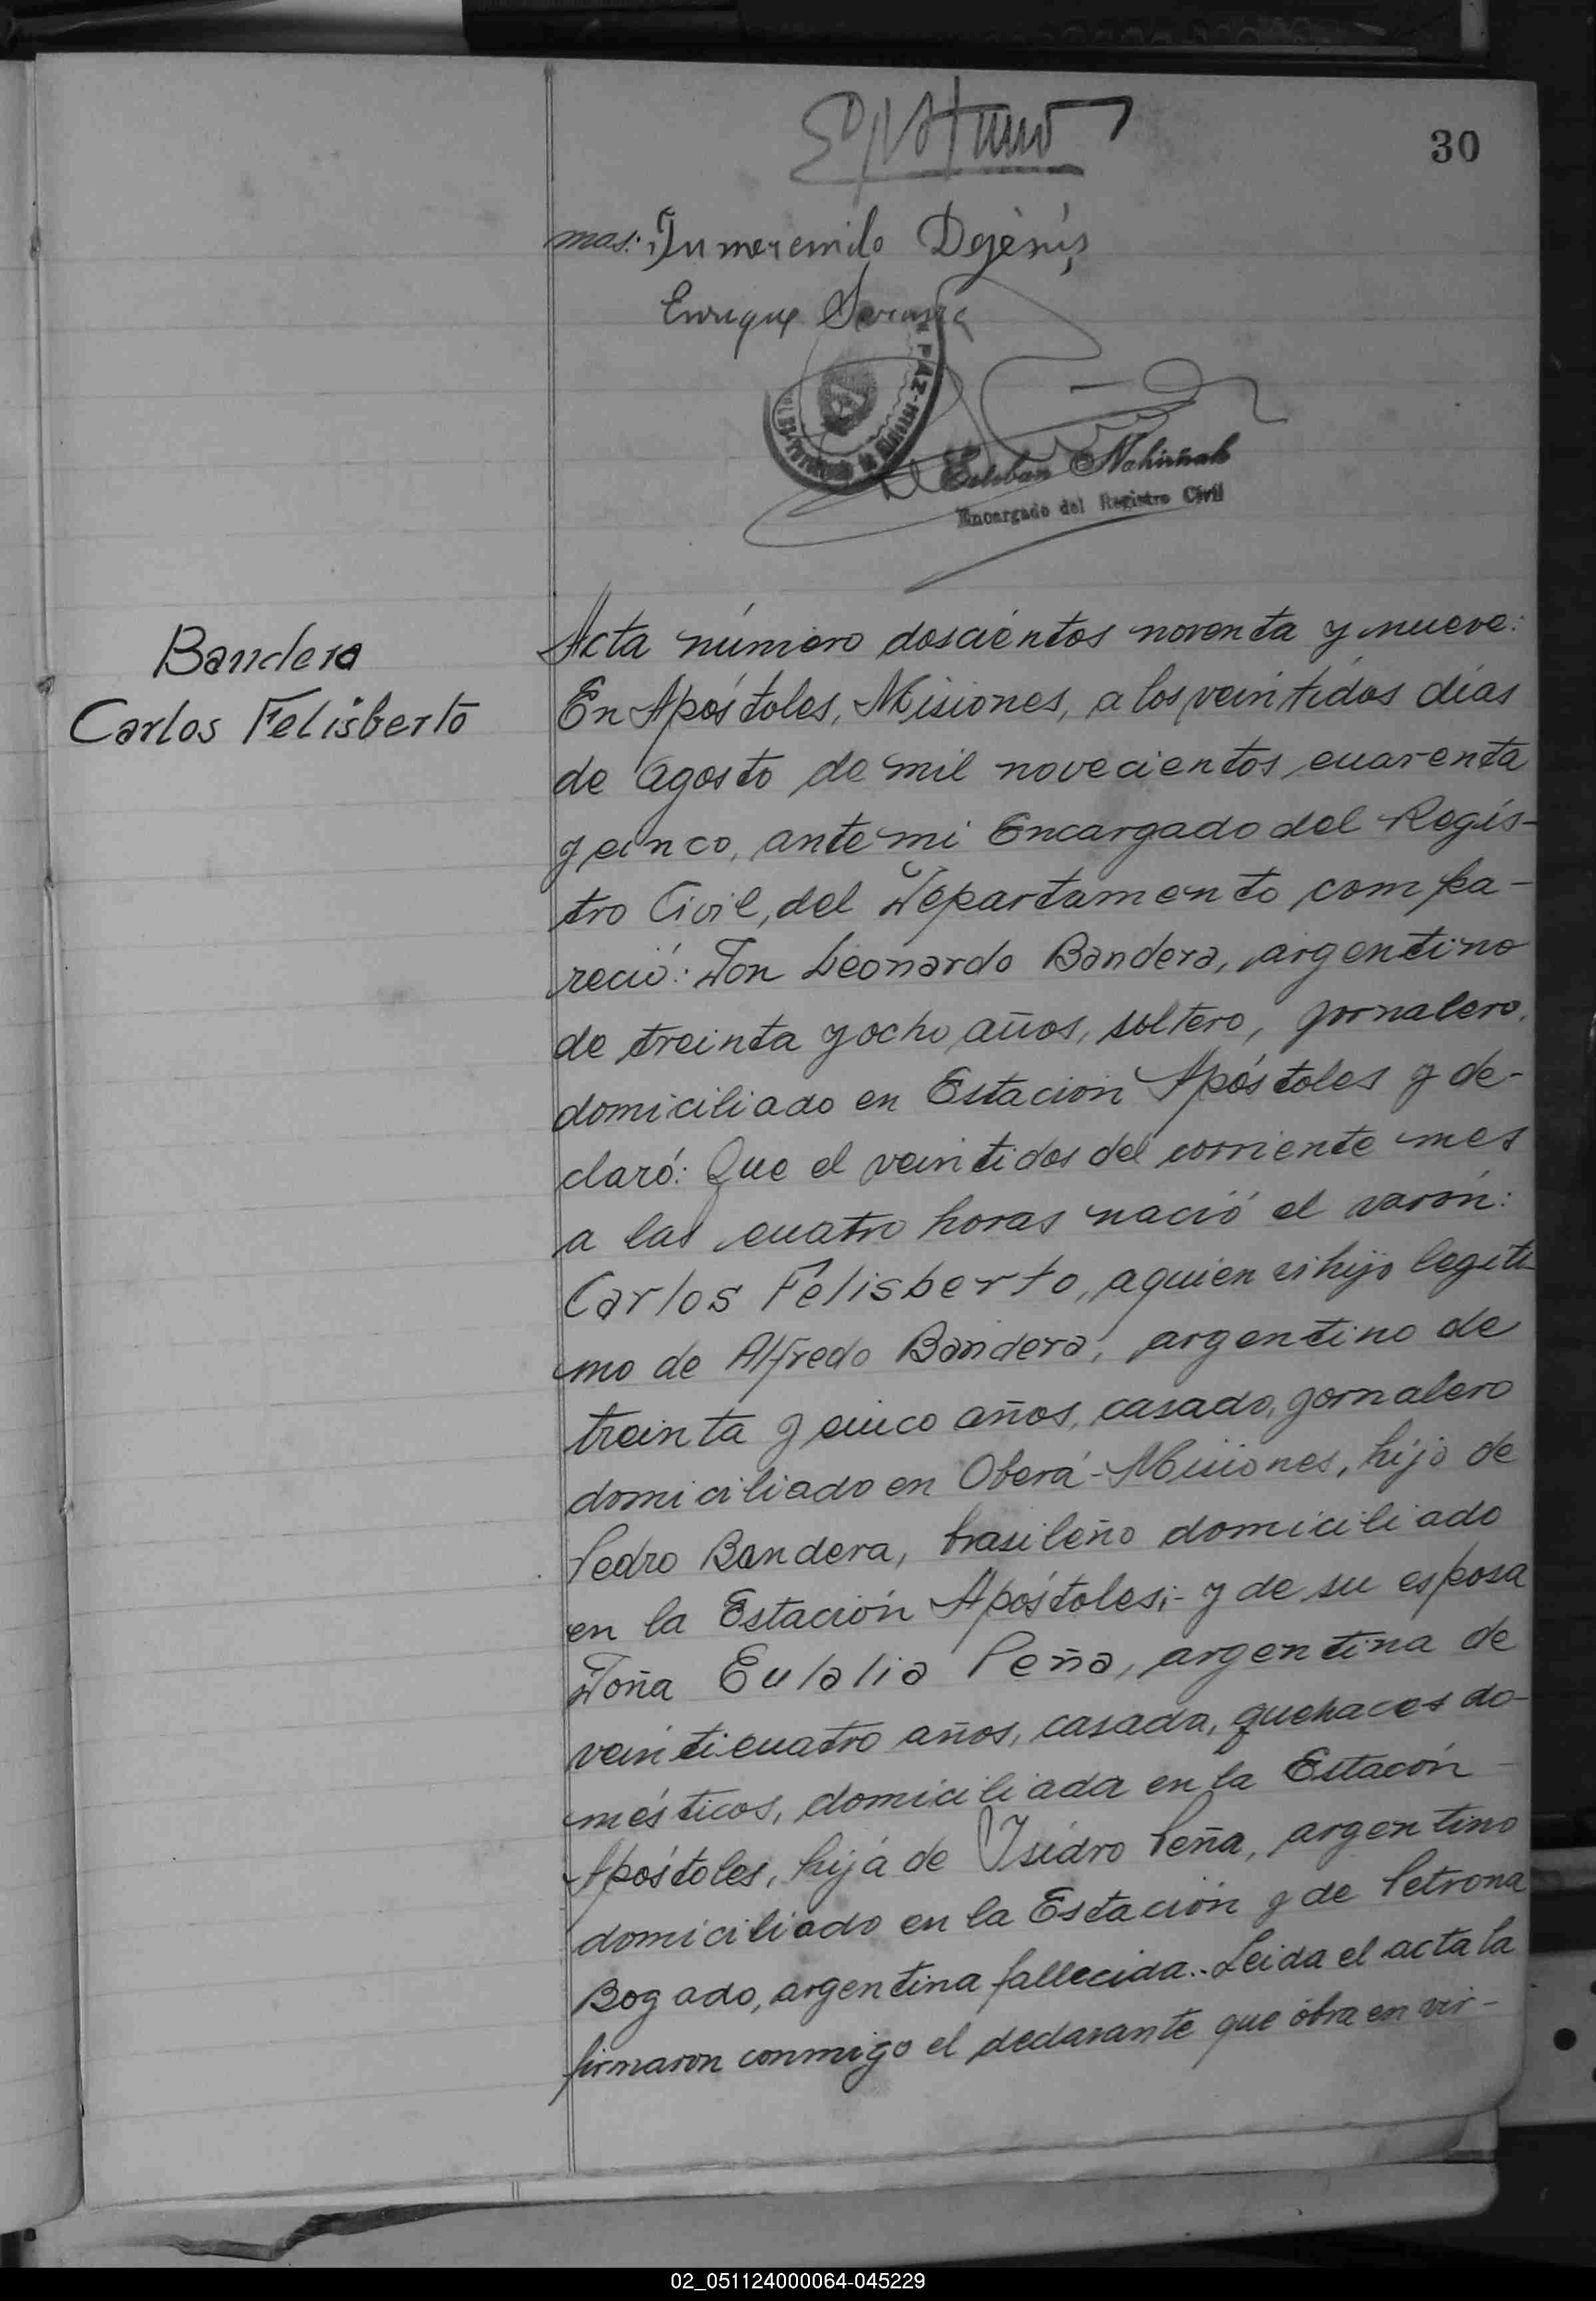 30
mas:
Enrique
Esteban Nahirñak
Encargado del Registro Civil
Bandera
Carlos Felisberto
Acta número doscientos noventa y nueve:
En Apóstoles, Misiones, a los veintidos días
de Agosto de mil novecientos cuarenta
y cinco, ante mi Encargado del Regis-
tro Civil, del Departamento compa-
reció: Don Leonardo Bandera, argentino
de treinta y ocho años, soltero, jornalero,
domiciliado en Estación Apóstoles y de-
claró: Que el veintidos del corriente mes
a las cuatro horas nació el varón:
Carlos Felisberto, a quien es hijo legíti-
mo de Alfredo Bandera, argentino de
treinta y cinco años, casado, jornalero
domiciliado en Oberá-Misiones, hijo de
Pedro Bandera, brasileño domiciliado
en la Estación Apóstoles;- y de su esposa
Doña Eulalia Peña, argentina de
veinticuatro años, casada, quehaces do-
mésticos, domiciliada en la Estacón
Apóstoles, hija de Isidro Peña, argentino
domiciliado en la Estación y de Petrona
Bogado, argentina fallecida.- Leida el acta la
firmaron conmigo el declarante que obra en vir-
02_051124000064-045229